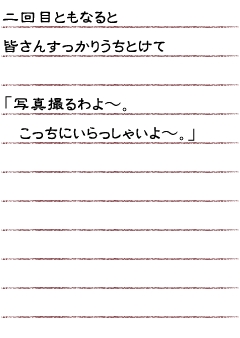 二回目ともなると
皆さんすっかりうちとけて
「写真撮るわよ～。
こっちにいらっしゃいよ～。」